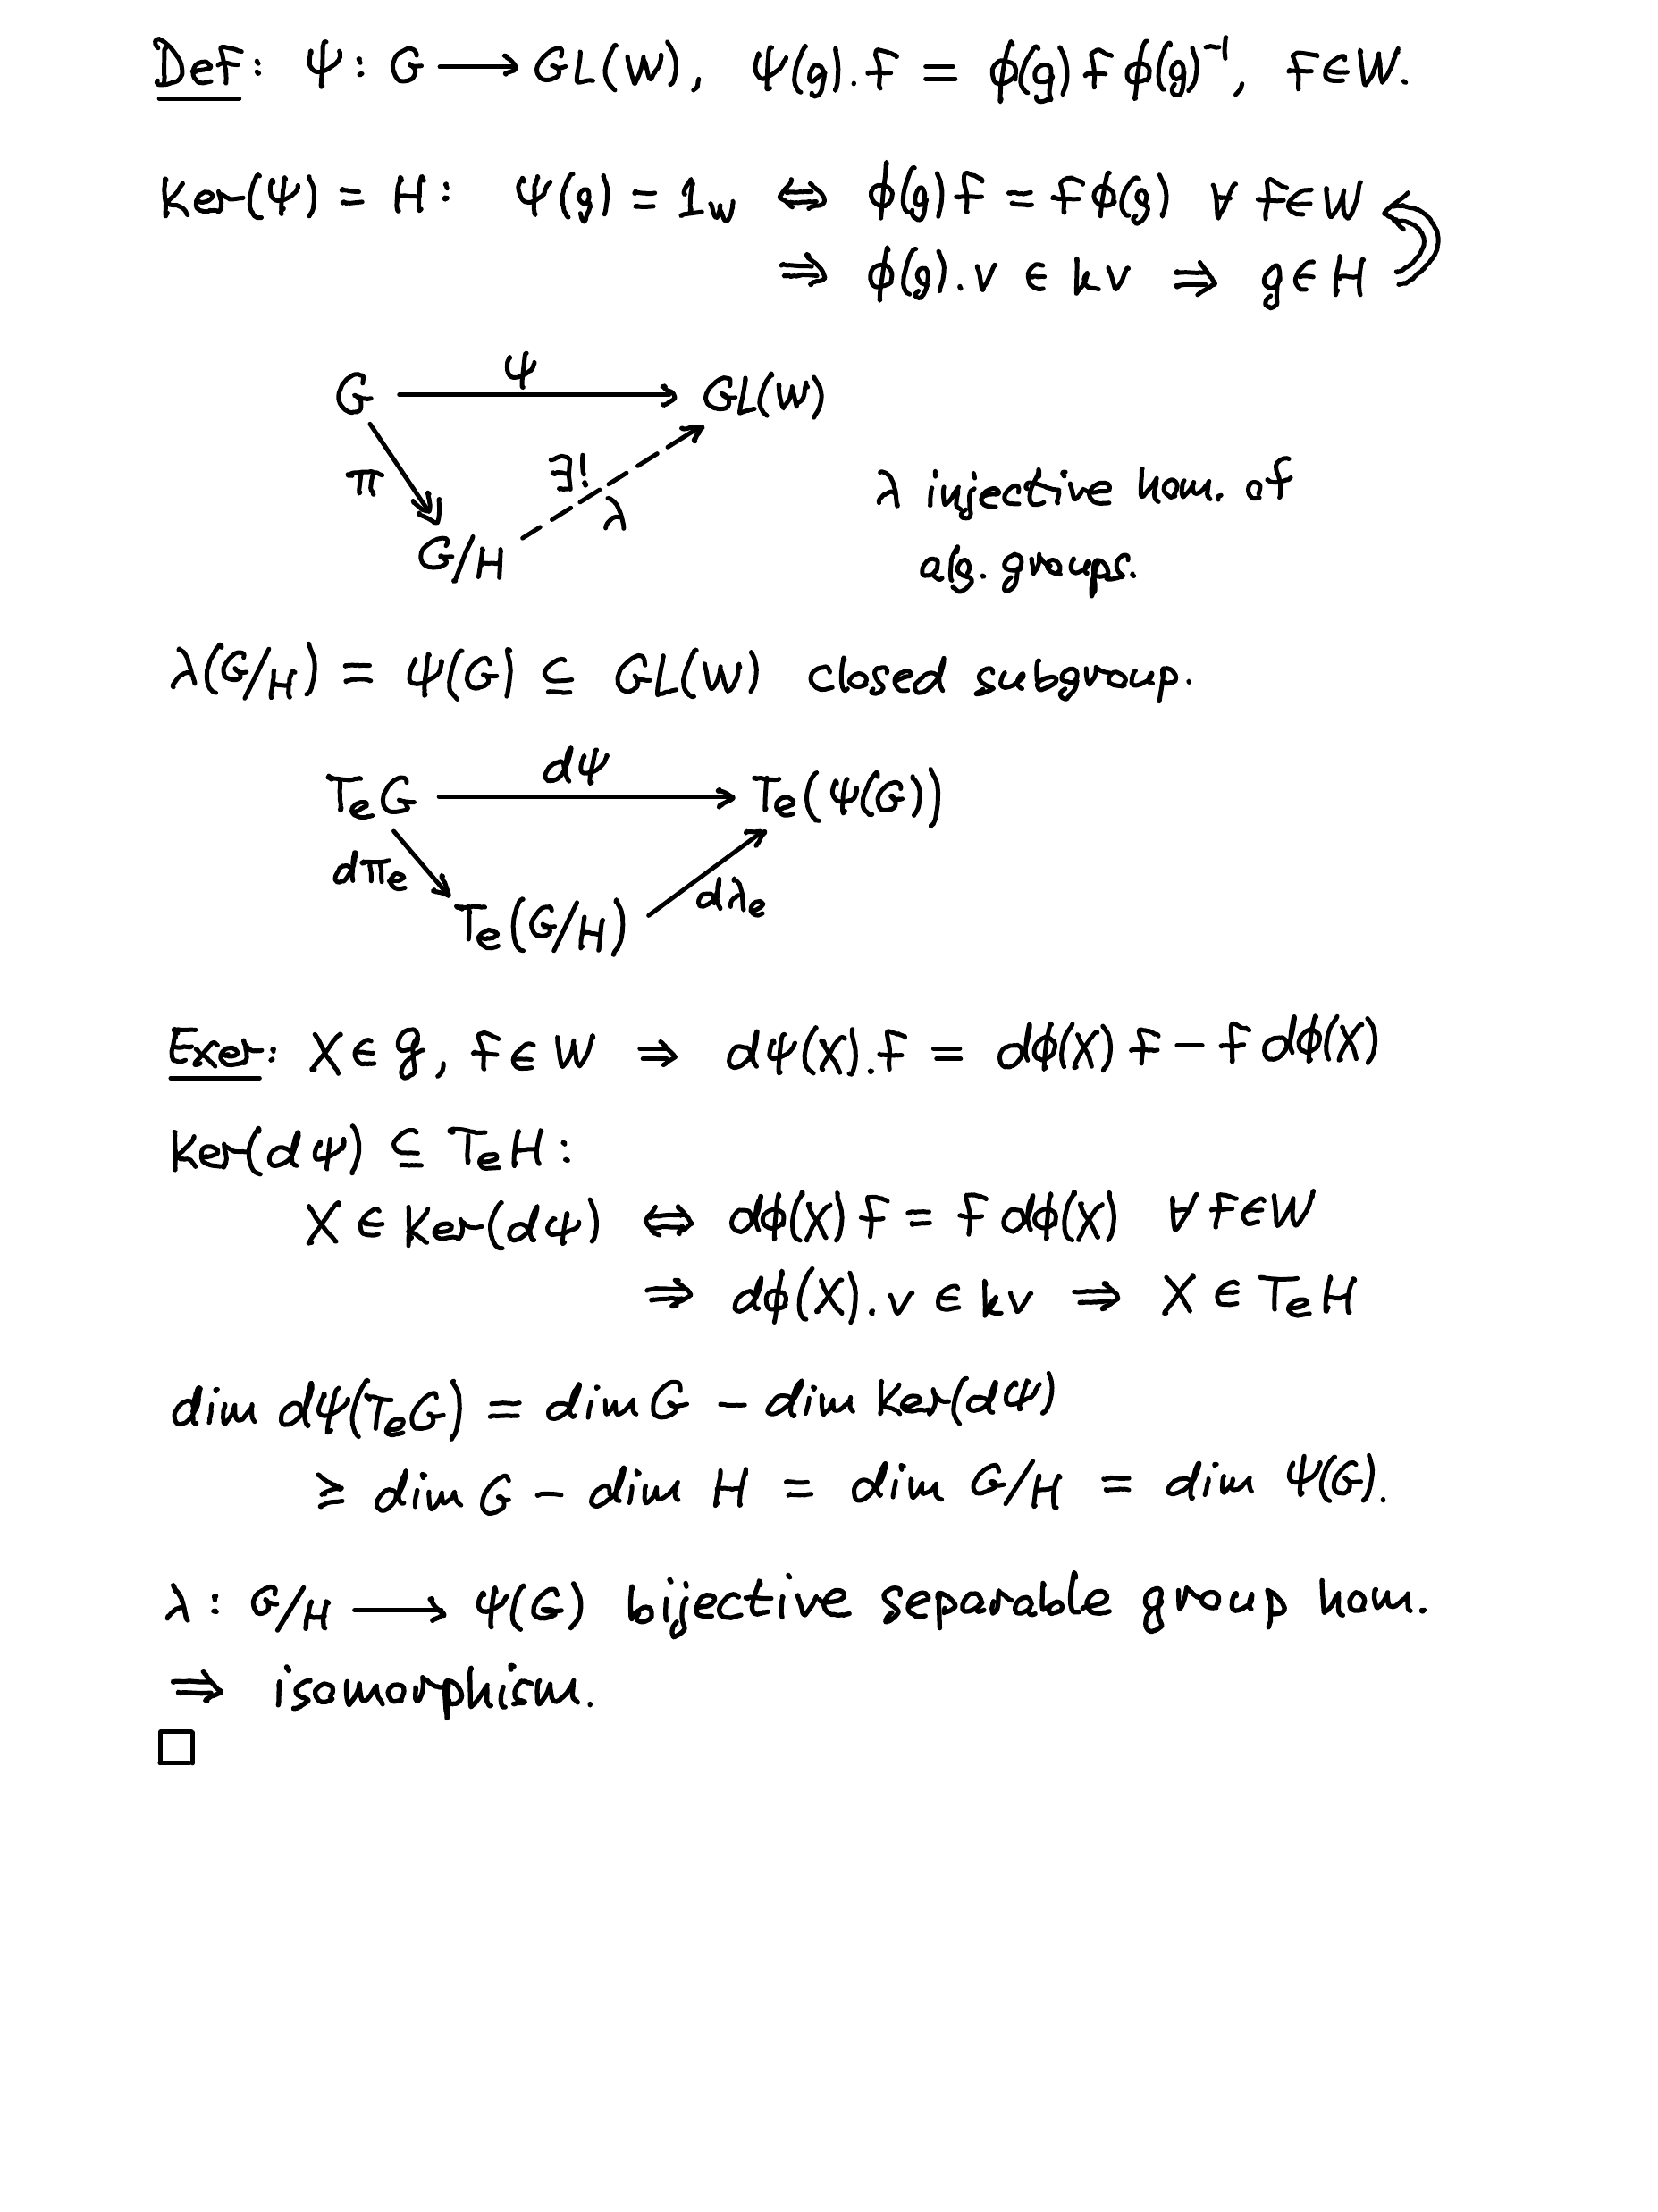 Def: ψ: G ⟶ GL(W), ψ(g).f = ϕ(g) f ϕ(g)⁻¹, f∈W.
Ker(ψ) = H: ψ(g) = 1_W ⇔ ϕ(g) f = f ϕ(g) ∀ f∈W
⇒ ϕ(g).v ∈ kv ⇒ g∈H
G ψ GL(W)
π ∃! λ
λ injective hom. of
G/H
alg. groups.
λ(G/H) = ψ(G) ⊆ GL(W) closed subgroup.
dψ
TₑG ⟶ Tₑ(ψ(G))
dπₑ dλₑ
Tₑ(G/H)
Exer: X∈𝔤, f∈W ⇒ dψ(X).f = dϕ(X) f − f dϕ(X)
Ker(dψ) ⊆ TₑH:
X ∈ Ker(dψ) ⇔ dϕ(X) f = f dϕ(X) ∀ f∈W
⇒ dϕ(X).v ∈ kv ⇒ X ∈ TₑH
dim dψ(TₑG) = dim G − dim Ker(dψ)
≥ dim G − dim H = dim G/H = dim ψ(G).
λ: G/H ⟶ ψ(G) bijective separable group hom.
⇒ isomorphism.
□